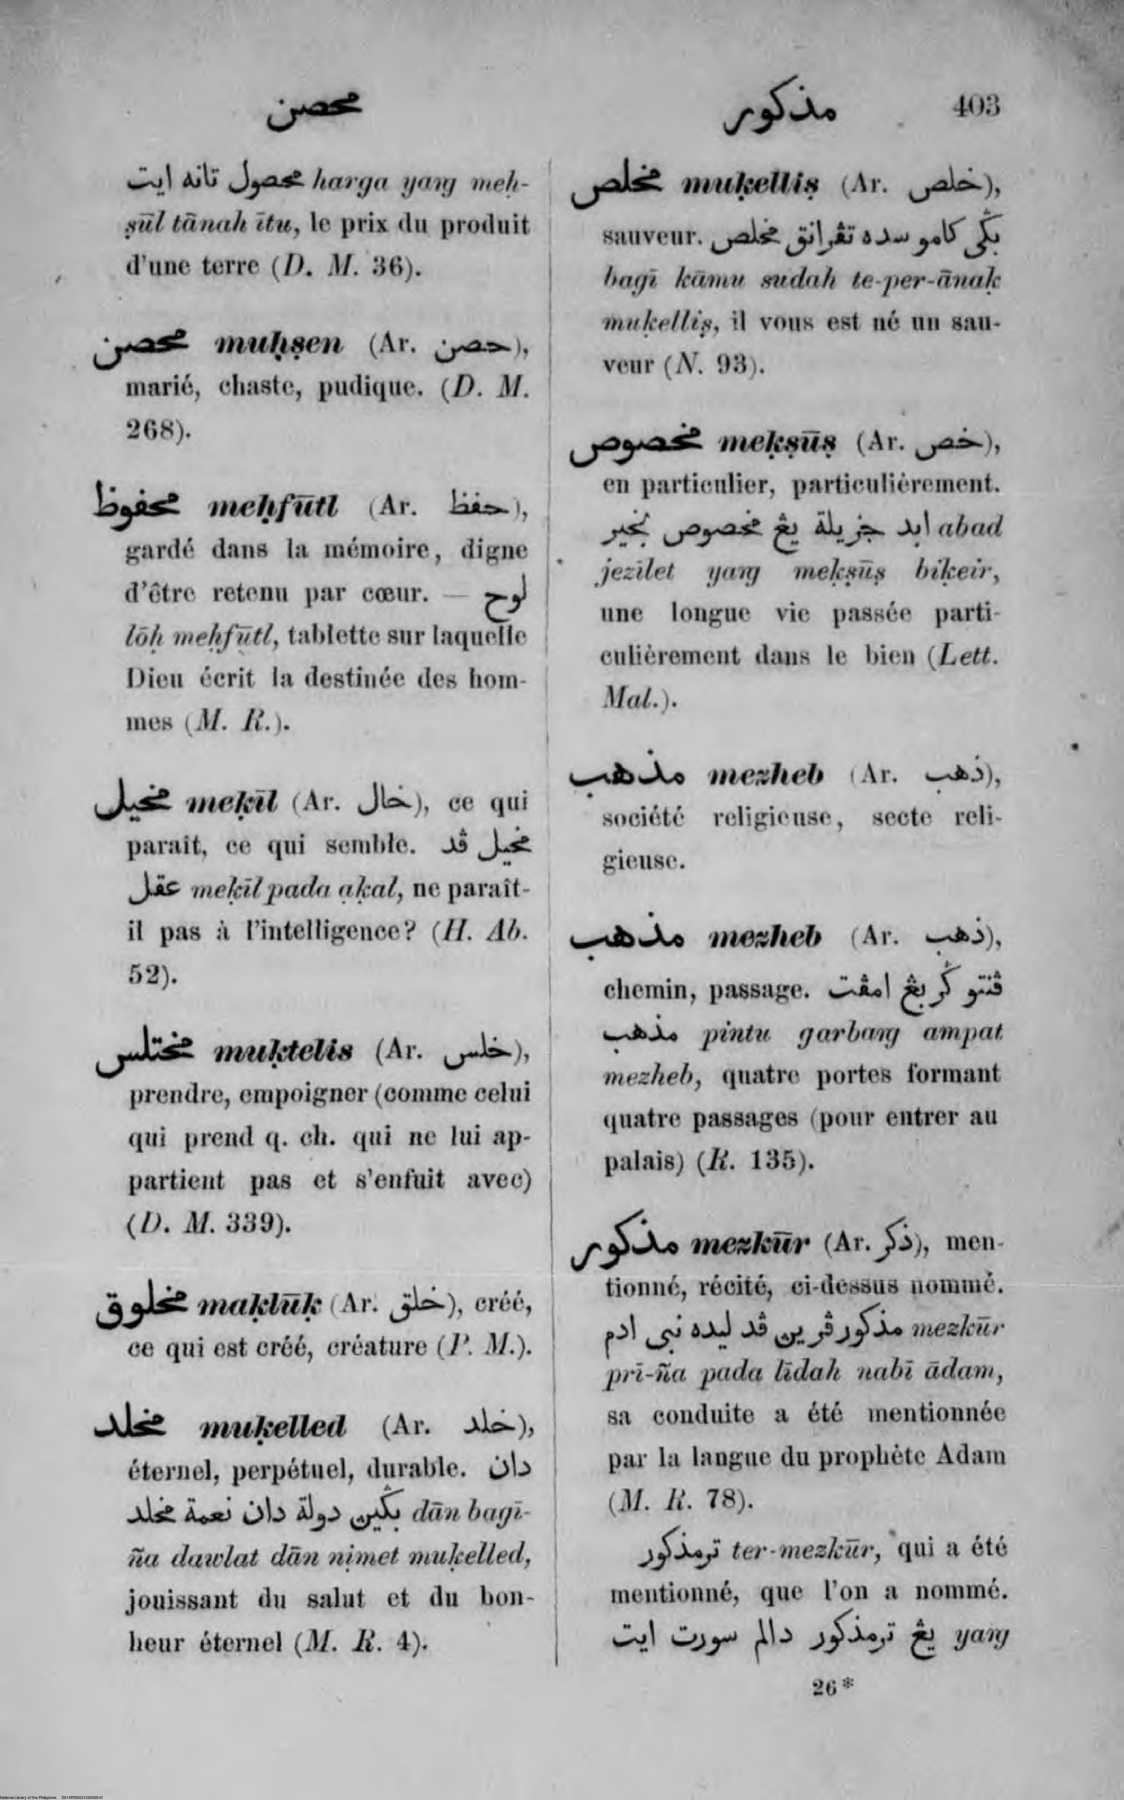 محصن
مذكور 403
محصول تانه ايت harga yaṅg meḥ-
ṣūl tānah ītu, le prix du produit
d'une terre (D. M. 36).
محصن muḥṣen (Ar. حصن),
marié, chaste, pudique. (D. M.
268).
محفوظ meḥfūtl (Ar. حفظ),
gardé dans la mémoire, digne
d'être retenu par cœur. — لوح
lōḥ meḥfūtl, tablette sur laquelle
Dieu écrit la destinée des hom-
mes (M. R.).
مخيل meḳīl (Ar. خال), ce qui
parait, ce qui semble. مخيل ڤد
عقل meḳīl pada aḳal, ne paraît-
il pas à l'intelligence? (H. Ab.
52).
مختلس muḳtelis (Ar. خلس),
prendre, empoigner (comme celui
qui prend q. ch. qui ne lui ap-
partient pas et s'enfuit avec)
(D. M. 339).
مخلوق maḳlūḳ (Ar. خلق), créé,
ce qui est créé, créature (P. M.).
مخلد muḳelled (Ar. خلد),
éternel, perpétuel, durable. دان
بݢين دولة دان نعمة مخلد dān bagī-
ña dawlat dān niмet muḳelled,
jouissant du salut et du bon-
heur éternel (M. R. 4).
مخلص muḳelliṣ (Ar. خلص),
sauveur. بݢي كامو سده تڤرانق مخلص
bagī kāmu sudah te-per-ānaḳ
muḳelliṣ, il vous est né un sau-
veur (N. 93).
مخصوص meḳṣūṣ (Ar. خص),
en particulier, particulièrement.
ابد جزيلة يڠ مخصوص بخير abad
jezīlet yaṅg meḳṣūṣ biḳeir,
une longue vie passée parti-
culièrement dans le bien (Lett.
Mal.).
مذهب mezheb (Ar. ذهب),
société religieuse, secte reli-
gieuse.
مذهب mezheb (Ar. ذهب),
chemin, passage. ڤنتو ݢربڠ امڤت
مذهب pintu garbaṅg ampat
mezheb, quatre portes formant
quatre passages (pour entrer au
palais) (R. 135).
مذكور mezkūr (Ar. ذكر), men-
tionné, récité, ci-dessus nommé.
مذكور ڤرين ڤد ليده نبي ادم mezkūr
prī-ña pada līdah nabī ādam,
sa conduite a été mentionnée
par la langue du prophète Adam
(M. R. 78).
ترمذكور ter-mezkūr, qui a été
mentionné, que l'on a nommé.
يڠ ترمذكور دالم سورت ايت yaṅg
26*